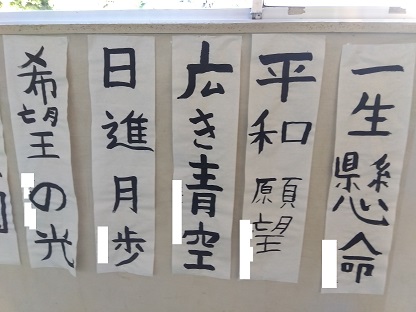 一生懸命
平和願望
広き青空
日進月歩
希望の光